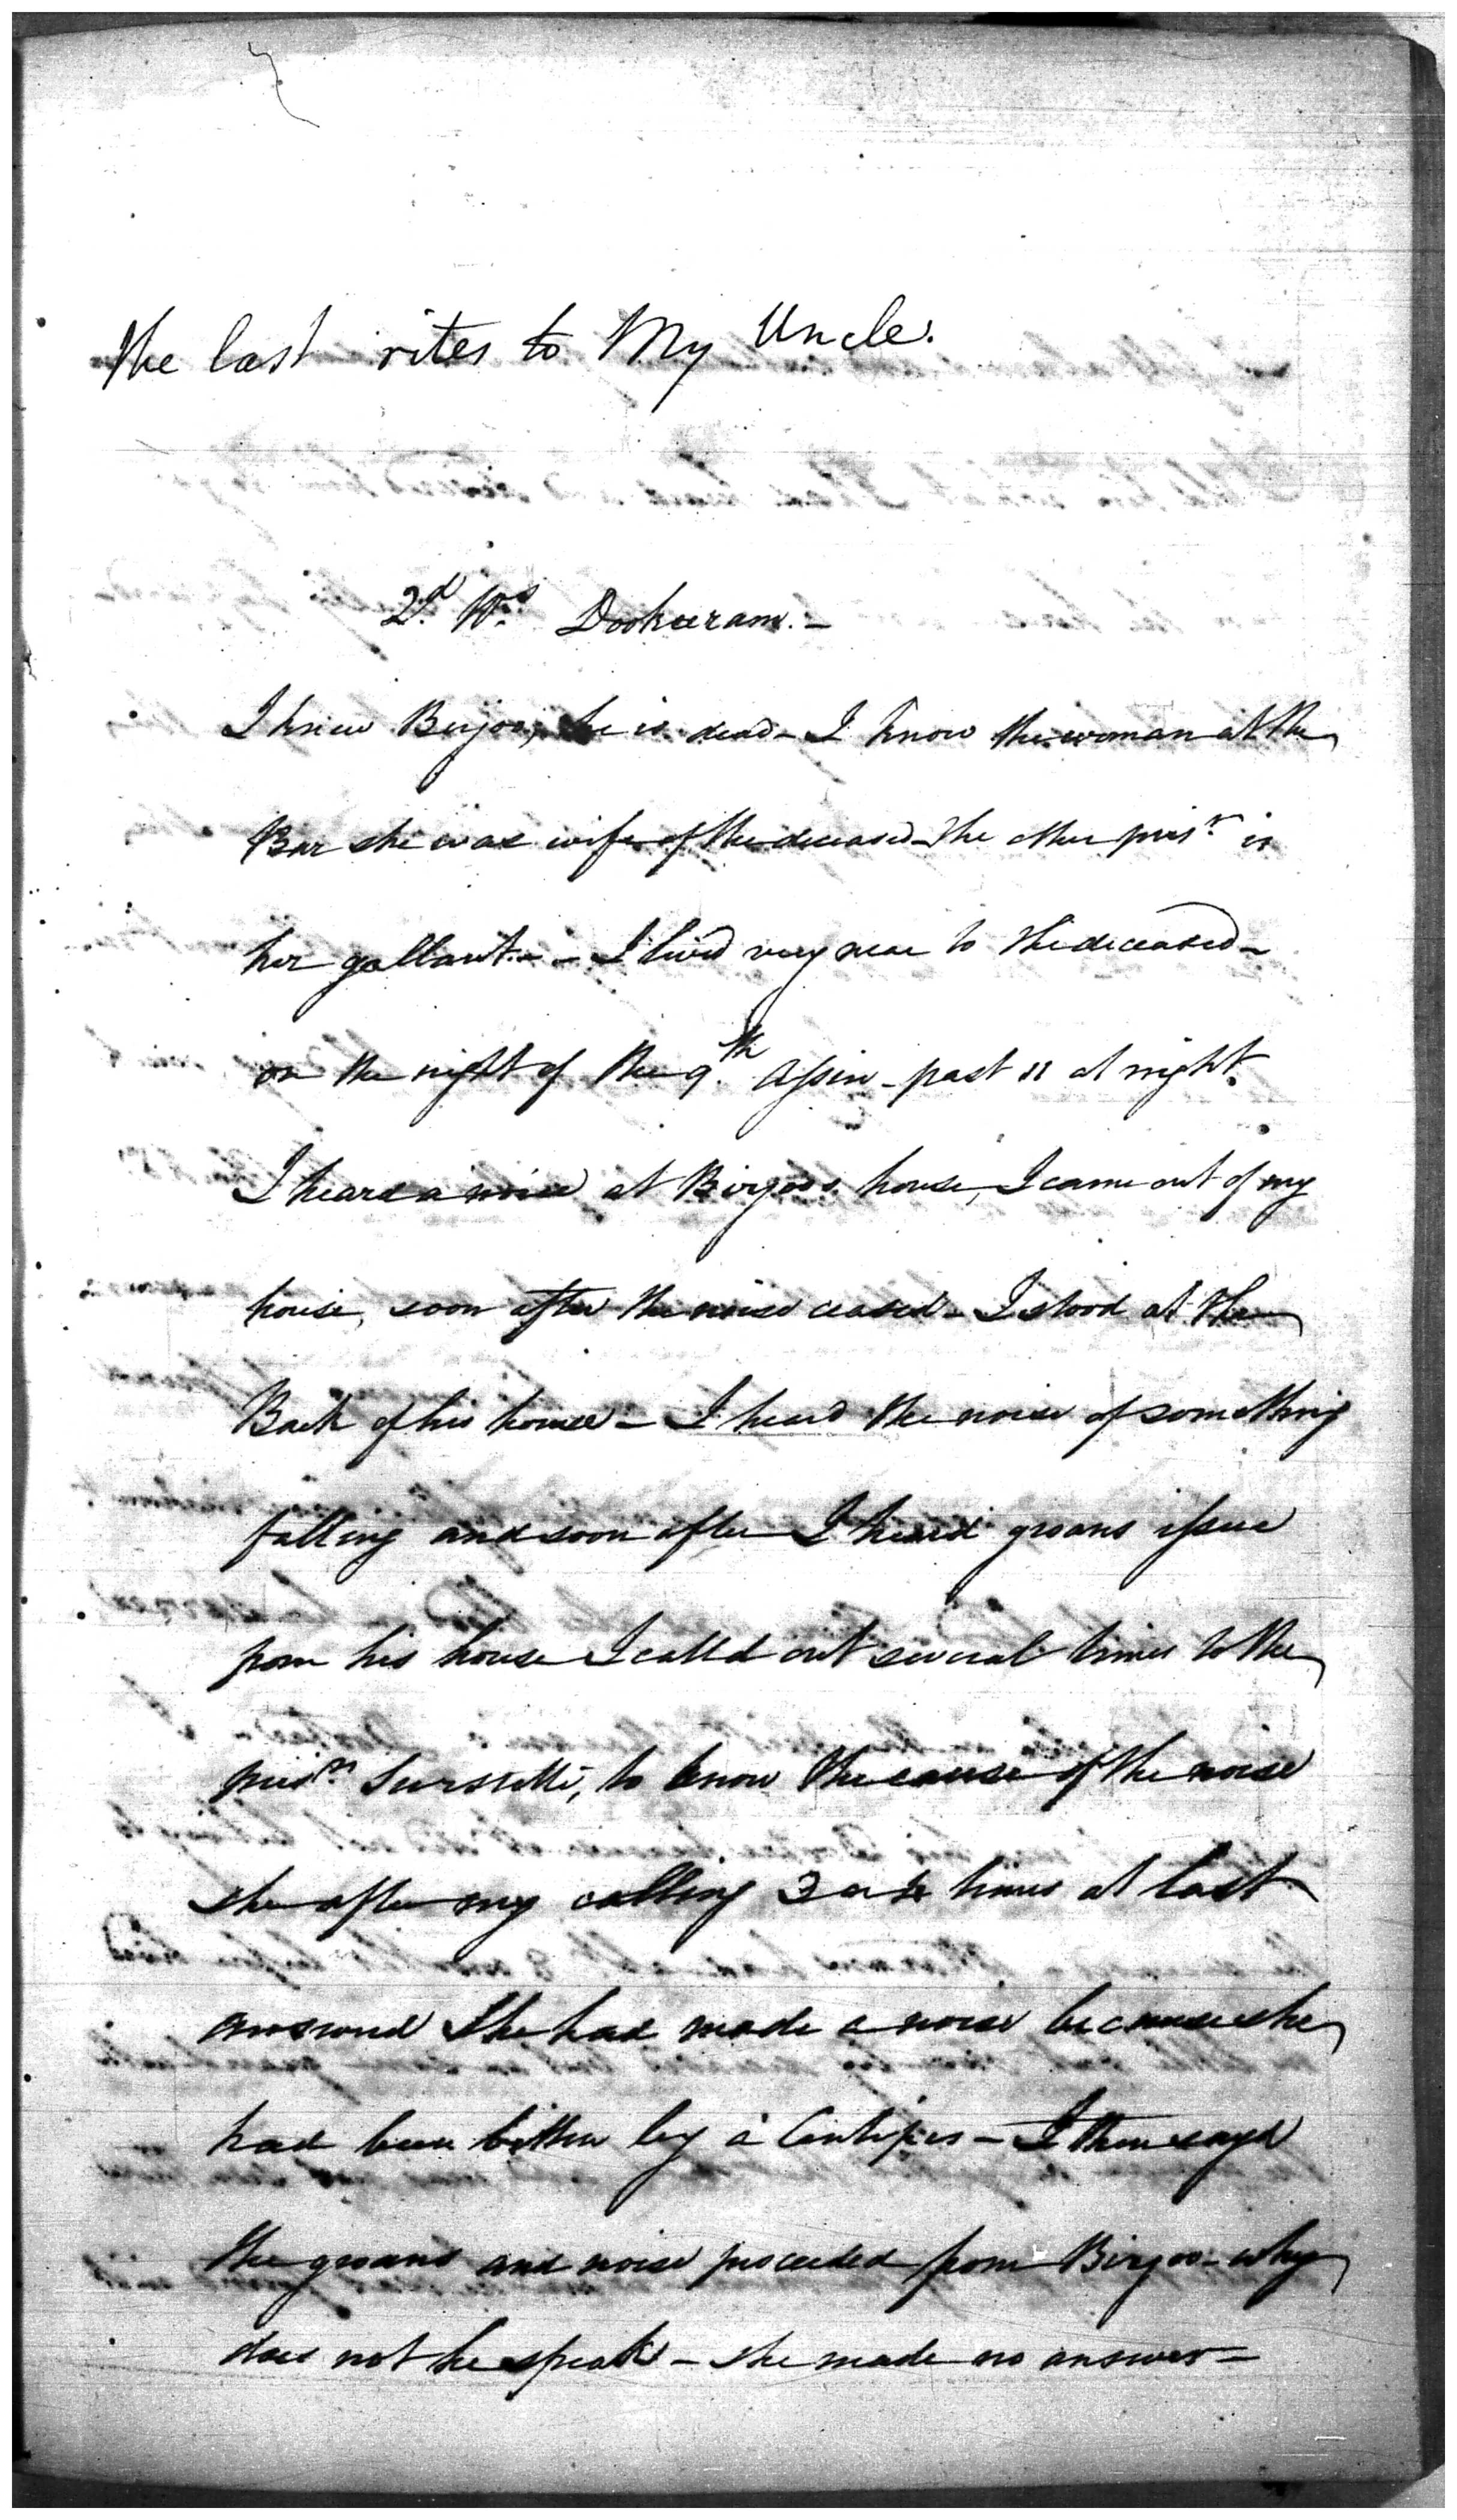 the last rites to My Uncle.
2.d Ws Dookeeram. -
I knew Birjoo, he is dead - I know the woman at the
Bar she was wife of the deceased - The other prisr. is
her gallant - - I lived very near to the deceased -
on the night of the 9.th Assin - past 11 at night
I heard a noise at Birjoos house, I came out of my
house, soon after the noise ceased - I stood at the
Back of his house - I heard the noise of something
falling and soon after I heard groans issue
from his house I calld out several times to the
prisr. to know the cause of the noise
she after my calling 3 or 4 times at last
answered She had made a noise because she
had been bitten by a - I then sayd
the groans and noise proceeded from Birjoo - why
does not he speak - she made no answer -